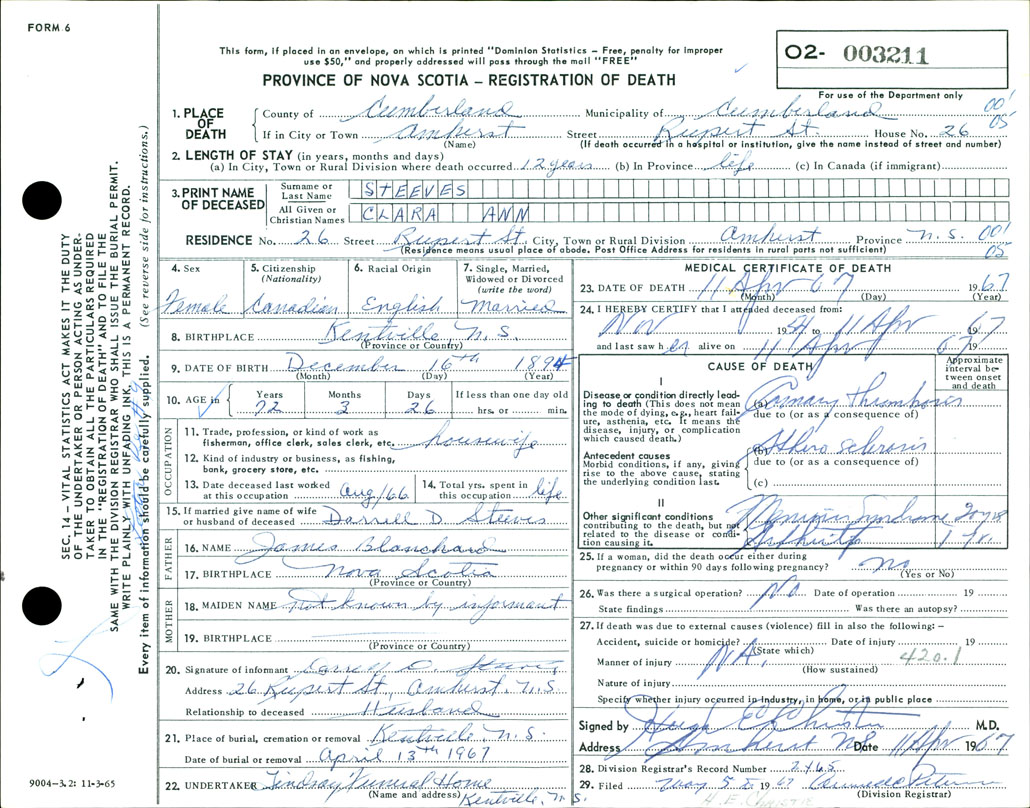 FORM 6
This form, if placed in an envelope, on which is printed "Dominion Statistics – Free, penalty for improper
use $50," and properly addressed will pass through the mail "FREE"
O2- 003211
PROVINCE OF NOVA SCOTIA – REGISTRATION OF DEATH
For use of the Department only
1. PLACE OF DEATH County of Cumberland Municipality of Cumberland 00'
If in City or Town Amherst Street Rupert St. House No. 26 05
(Name) (If death occurred in a hospital or institution, give the name instead of street and number)
2. LENGTH OF STAY (in years, months and days)
(a) In City, Town or Rural Division where death occurred 12 years (b) In Province life (c) In Canada (if immigrant)
3. PRINT NAME OF DECEASED Surname or Last Name STEEVES
All Given or Christian Names CLARA ANN
RESIDENCE No. 26 Street Rupert St. City, Town or Rural Division Amherst Province N.S. 00' 05
(Residence means usual place of abode. Post Office Address for residents in rural parts not sufficient)
4. Sex 5. Citizenship (Nationality) 6. Racial Origin 7. Single, Married, Widowed or Divorced (write the word)
Female Canadian English Married
8. BIRTHPLACE Kentville N.S.
(Province or Country)
9. DATE OF BIRTH December 16th 1894
(Month) (Day) (Year)
10. AGE in Years Months Days If less than one day old
72 3 26 hrs. or min.
OCCUPATION
11. Trade, profession, or kind of work as
fisherman, office clerk, sales clerk, etc. housewife
12. Kind of industry or business, as fishing,
bank, grocery store, etc.
13. Date deceased last worked at this occupation Aug/66 14. Total yrs. spent in this occupation life
15. If married give name of wife
or husband of deceased Darrell D. Steeves
FATHER
16. NAME James Blanchard
17. BIRTHPLACE Nova Scotia
(Province or Country)
MOTHER
18. MAIDEN NAME Not known by informant
19. BIRTHPLACE
(Province or Country)
20. Signature of informant Darrell D. Steeves
Address 26 Rupert St, Amherst. N.S
Relationship to deceased Husband
21. Place of burial, cremation or removal Kentville, N.S.
Date of burial or removal April 13th 1967
22. UNDERTAKER Lindsay Funeral Home
(Name and address) Kentville, N.S.
MEDICAL CERTIFICATE OF DEATH
23. DATE OF DEATH 11 Apr 67 1967
(Month) (Day) (Year)
24. I HEREBY CERTIFY that I attended deceased from:
Nov 1954 to 11 Apr 1967
and last saw her alive on 11 Apr 1967
CAUSE OF DEATH
Approximate interval between onset and death
I
Disease or condition directly leading to death (This does not mean the mode of dying, e.g., heart failure, asthenia, etc. It means the disease, injury, or complication which caused death.)
(a) Coronary Thrombosis
due to (or as a consequence of)
Antecedent causes
Morbid conditions, if any, giving rise to the above cause, stating the underlying condition last.
(b) Athero sclerosis
due to (or as a consequence of)
(c)
II
Other significant conditions
contributing to the death, but not related to the disease or condition causing it.
Syndrome
Arthritis
25. If a woman, did the death occur either during
pregnancy or within 90 days following pregnancy? No
(Yes or No)
26. Was there a surgical operation? No Date of operation 19
State findings Was there an autopsy?
27. If death was due to external causes (violence) fill in also the following: –
Accident, suicide or homicide? Date of injury 19
(State which)
Manner of injury N.A. 420.1
(How sustained)
Nature of injury
Specify whether injury occurred in industry, in home, or in public place
Signed by Hugh E. Christie M.D.
Address Amherst NS Date 11 Apr 1967
28. Division Registrar's Record Number 2465
29. Filed May 5 1967
(Division Registrar)
H. E. Christie
SEC. 14 – VITAL STATISTICS ACT MAKES IT THE DUTY
OF THE UNDERTAKER OR PERSON ACTING AS UNDER-
TAKER TO OBTAIN ALL THE PARTICULARS REQUIRED
IN THE "REGISTRATION OF DEATH" AND TO FILE THE
SAME WITH THE DIVISION REGISTRAR WHO SHALL ISSUE THE BURIAL PERMIT.
WRITE PLAINLY WITH UNFADING INK. THIS IS A PERMANENT RECORD.
Every item of information should be carefully supplied. (See reverse side for instructions.)
9004-3.2: 11-3-65